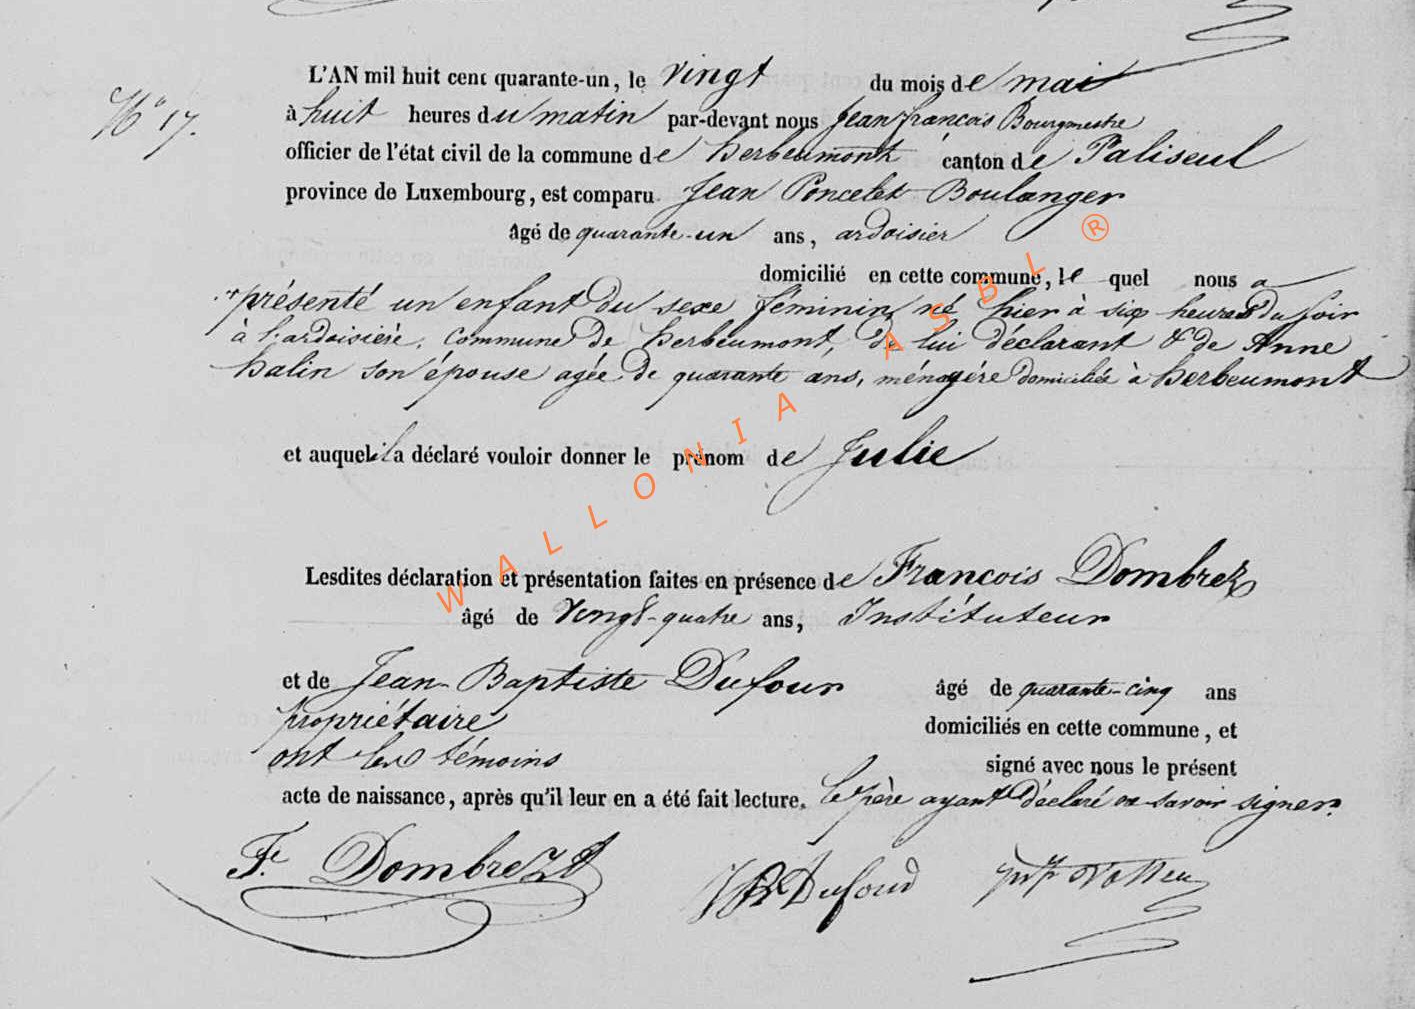 N° 17.
L'AN mil huit cent quarante-un, le vingt du mois de mai
à huit heures du matin par-devant nous Jean françois Bourgmestre
officier de l'état civil de la commune de herbeumont canton de Paliseul
province de Luxembourg, est comparu Jean Poncelet Boulanger
âgé de quarante-un ans, ardoisier
domicilié en cette commune, le quel nous a
présenté un enfant du sexe féminin né hier à six heures du soir
à l'ardoisière, commune de herbeumont, de lui déclarant & de Anne
halin son épouse agée de quarante ans, ménagère domiciliée à herbeumont
et auquel il a déclaré vouloir donner le prénom de Julie
Lesdites déclaration et présentation faites en présence de François Dombrez
âgé de vingt-quatre ans, Instituteur
et de Jean-Baptiste Dufour âgé de quarante-cinq ans
propriétaire domiciliés en cette commune, et
ont les témoins signé avec nous le présent
acte de naissance, après qu'il leur en a été fait lecture. le père ayant déclaré ne savoir signer.
F. Dombrez JB Dufour
WALLONIA ASBL ®